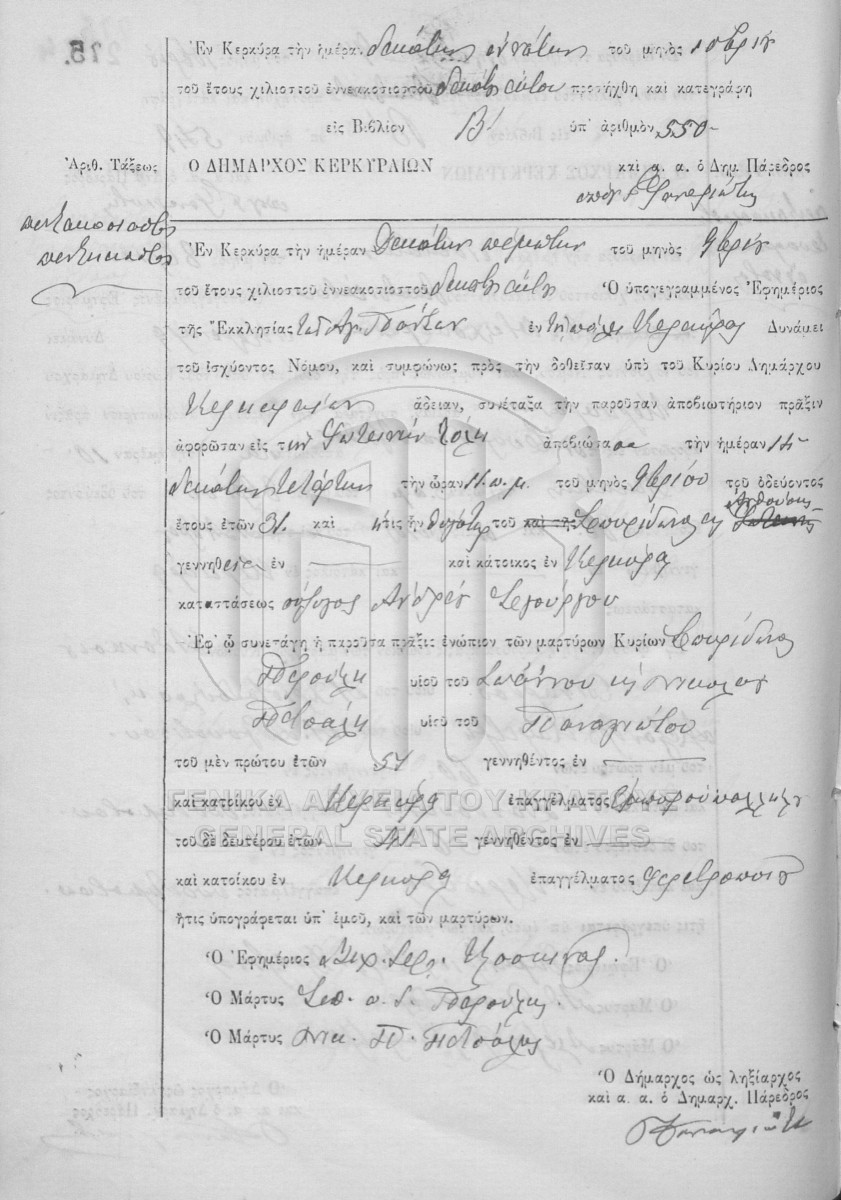 15.
Ἐν Κερκύρᾳ τὴν ἡμέραν δεκάτην ἐννάτην τοῦ μηνὸς
τοῦ ἔτους χιλιοστοῦ ἐννεακοσιοστοῦ δεκάτου προσήχθη καὶ κατεγράφη
εἰς Βιβλίον Β' ὑπ' ἀριθμὸν 550-
Ἀριθ. Τάξεως
Ὁ ΔΗΜΑΡΧΟΣ ΚΕΡΚΥΡΑΙΩΝ
καὶ ἀ. ἀ. ὁ Δημ. Πάρεδρος
πεντακοσιοστὸς
πεντηκοστὸς
Ἐν Κερκύρᾳ τὴν ἡμέραν Δεκάτην πέμπτην τοῦ μηνὸς 9βρίου
τοῦ ἔτους χιλιοστοῦ ἐννεακοσιοστοῦ Ὁ ὑπογεγραμμένος Ἐφημέριος
τῆς Ἐκκλησίας τῶν Ἁγ. Πάντων ἐν τῇ πόλει Κερκύρας Δυνάμει
τοῦ ἰσχύοντος Νόμου, καὶ συμφώνως πρὸς τὴν δοθεῖσαν ὑπὸ τοῦ Κυρίου Δημάρχου
Κερκυραίων ἄδειαν, συνέταξα τὴν παροῦσαν ἀποβιωτήριον πρᾶξιν
ἀφορῶσαν εἰς τὴν Φωτεινὴν ἀποβιώσασα τὴν ἡμέραν 14
δεκάτην τετάρτην τὴν ὥραν 11 π.μ. τοῦ μηνὸς 9βρίου τοῦ ὁδεύοντος
ἔτους ἐτῶν 31. καὶ ἥτις ἦν θυγάτηρ τοῦ καὶ τῆς Σπυρίδωνος
γεννηθεῖσα ἐν καὶ κάτοικος ἐν Κερκύρᾳ
καταστάσεως σύζυγος Ἀνδρέου
Ἐφ' ᾧ συνετάγη ἡ παροῦσα πρᾶξις ἐνώπιον τῶν μαρτύρων Κυρίων Σπυρίδωνα
Περούλη υἱοῦ τοῦ Ἰωάννου κ Νικολάου
Πετσάλη υἱοῦ τοῦ Παναγιώτου
τοῦ μὲν πρώτου ἐτῶν 51 γεννηθέντος ἐν
καὶ κατοίκου ἐν Κερκύρᾳ ἐπαγγέλματος ἐμποροϋπαλλήλου
ΓΕΝΙΚΑ ΑΡΧΕΙΑ ΤΟΥ ΚΡΑΤΟΥΣ
GENERAL STATE ARCHIVES
τοῦ δὲ δευτέρου ἐτῶν 41 γεννηθέντος ἐν
καὶ κατοίκου ἐν Κερκύρᾳ ἐπαγγέλματος φερετροποιοῦ
ἥτις ὑπογράφεται ὑπ' ἐμοῦ, καὶ τῶν μαρτύρων.
Ὁ Ἐφημέριος
Ὁ Μάρτυς Περούλης
Ὁ Μάρτυς Νικ. Π. Πετσάλης
Ὁ Δήμαρχος ὡς ληξίαρχος
καὶ ἀ. ἀ. ὁ Δημαρχ. Πάρεδρος